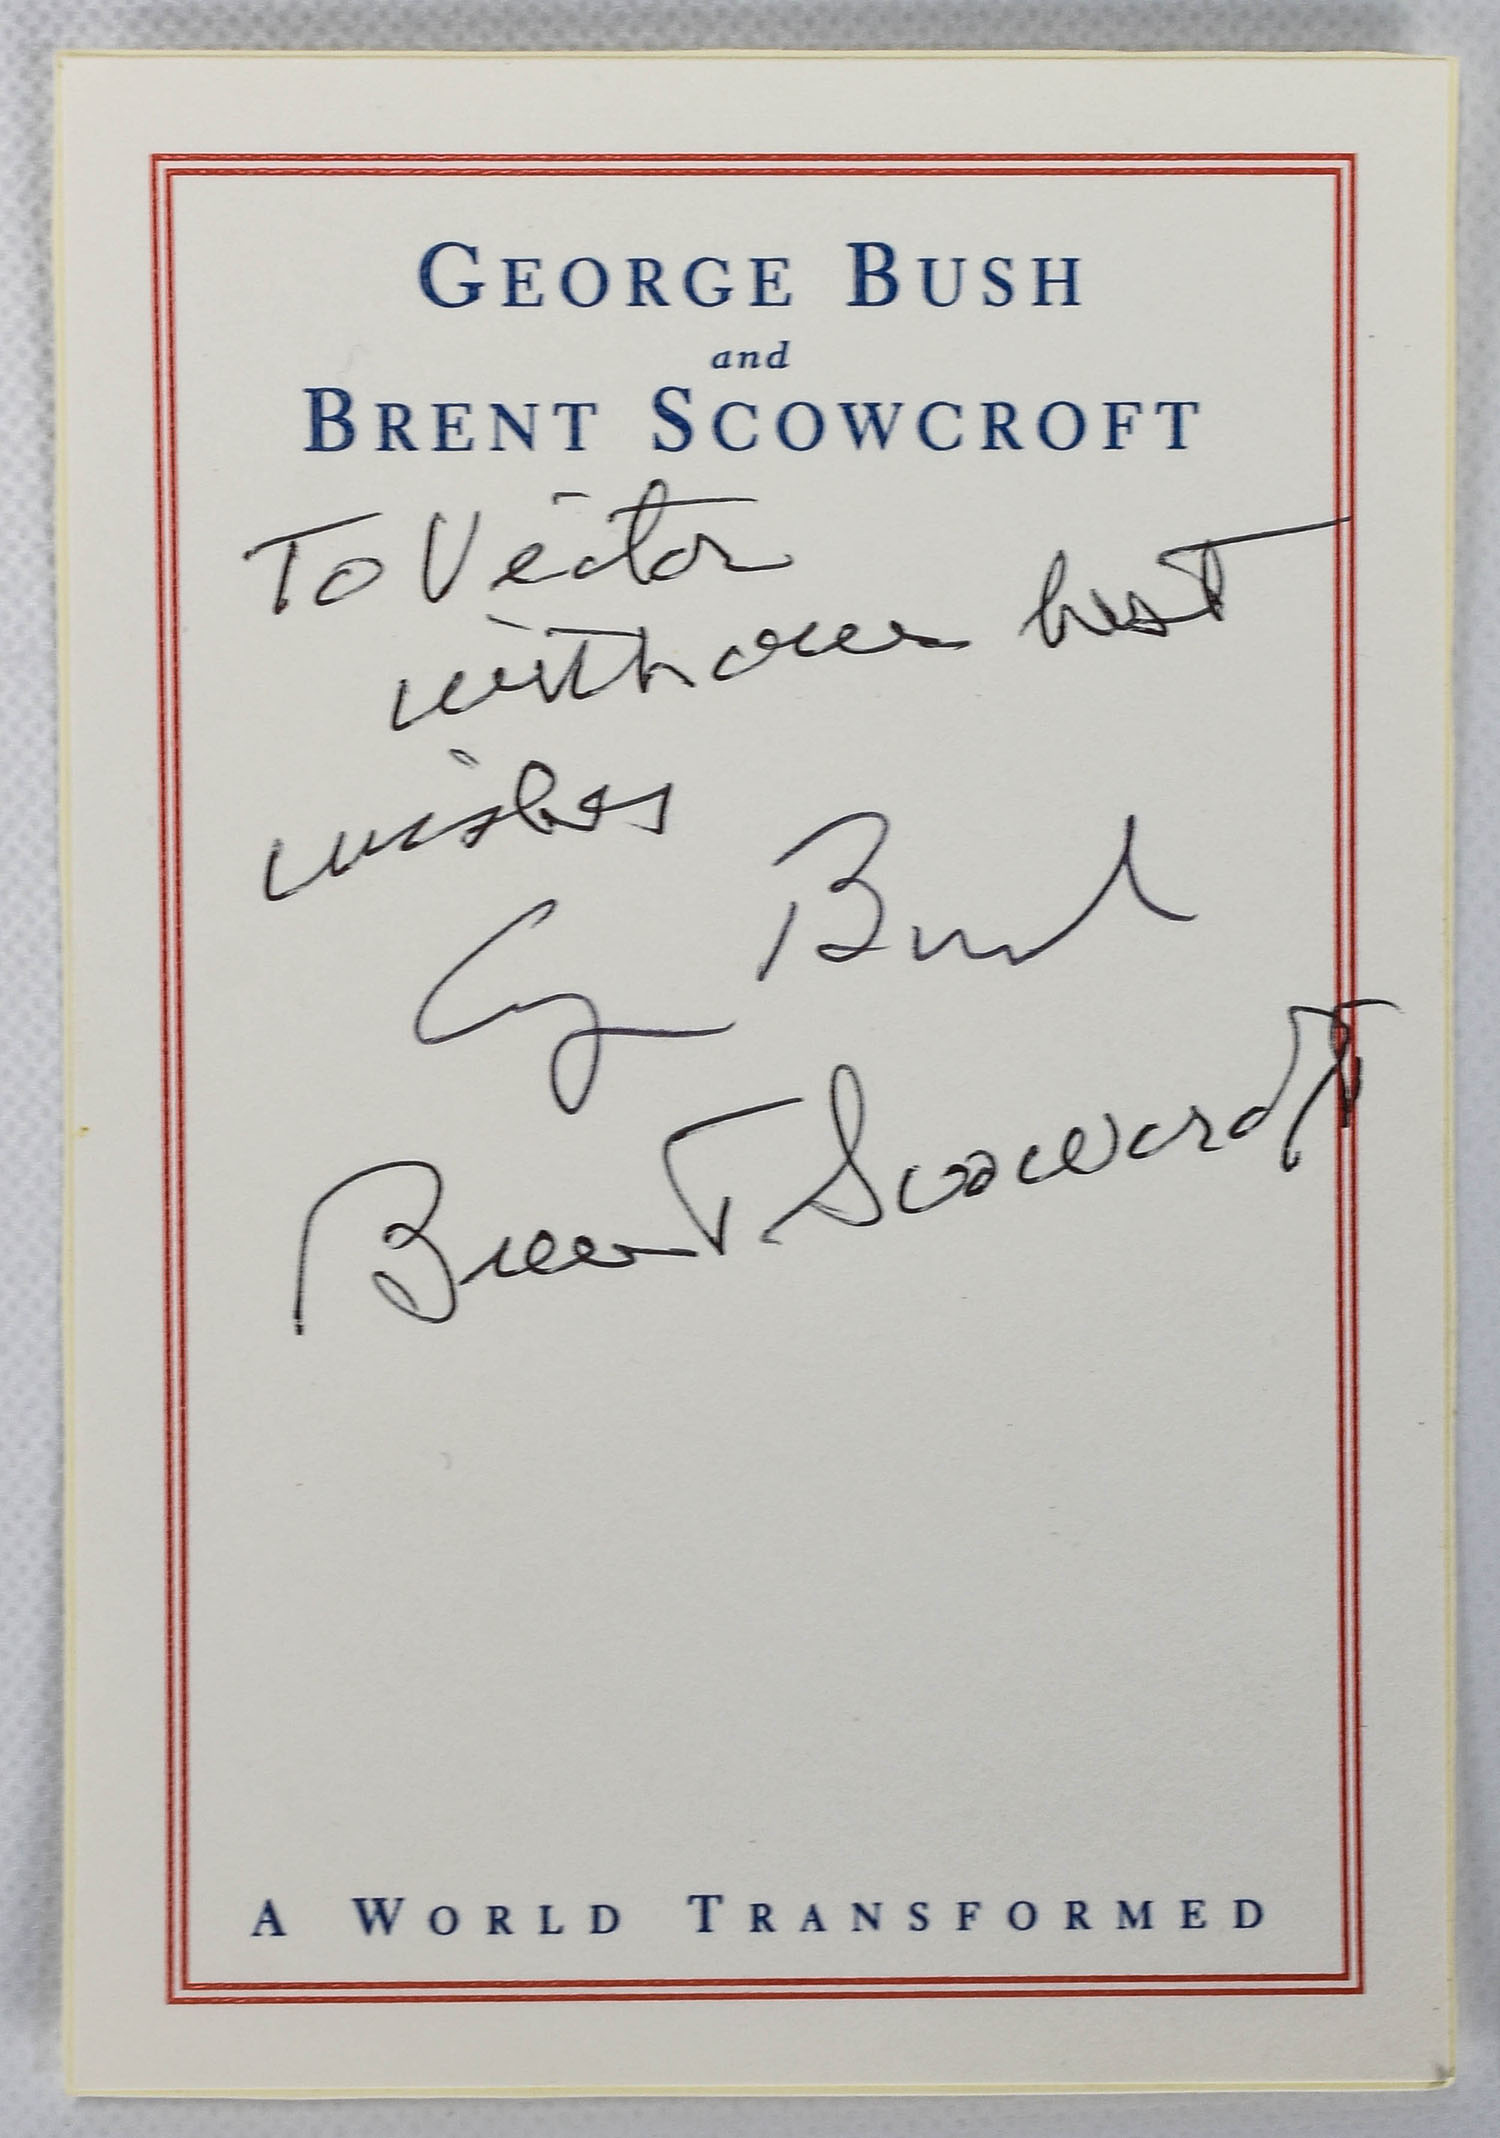 GEORGE BUSH
and
BRENT SCOWCROFT
To Victor
with our best
wishes
G Bush
Brent Scowcroft
A WORLD TRANSFORMED